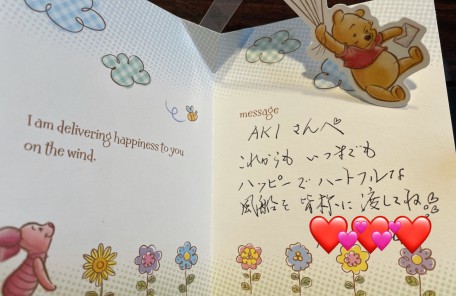 I am delivering happiness to you
on the wind.
message
AKI さんへ
これからも いつまでも
ハッピーで ハートフルな
風船を 皆様に 渡してね